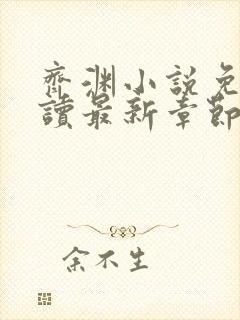 齊渊小說免
讀最新章節
余不生